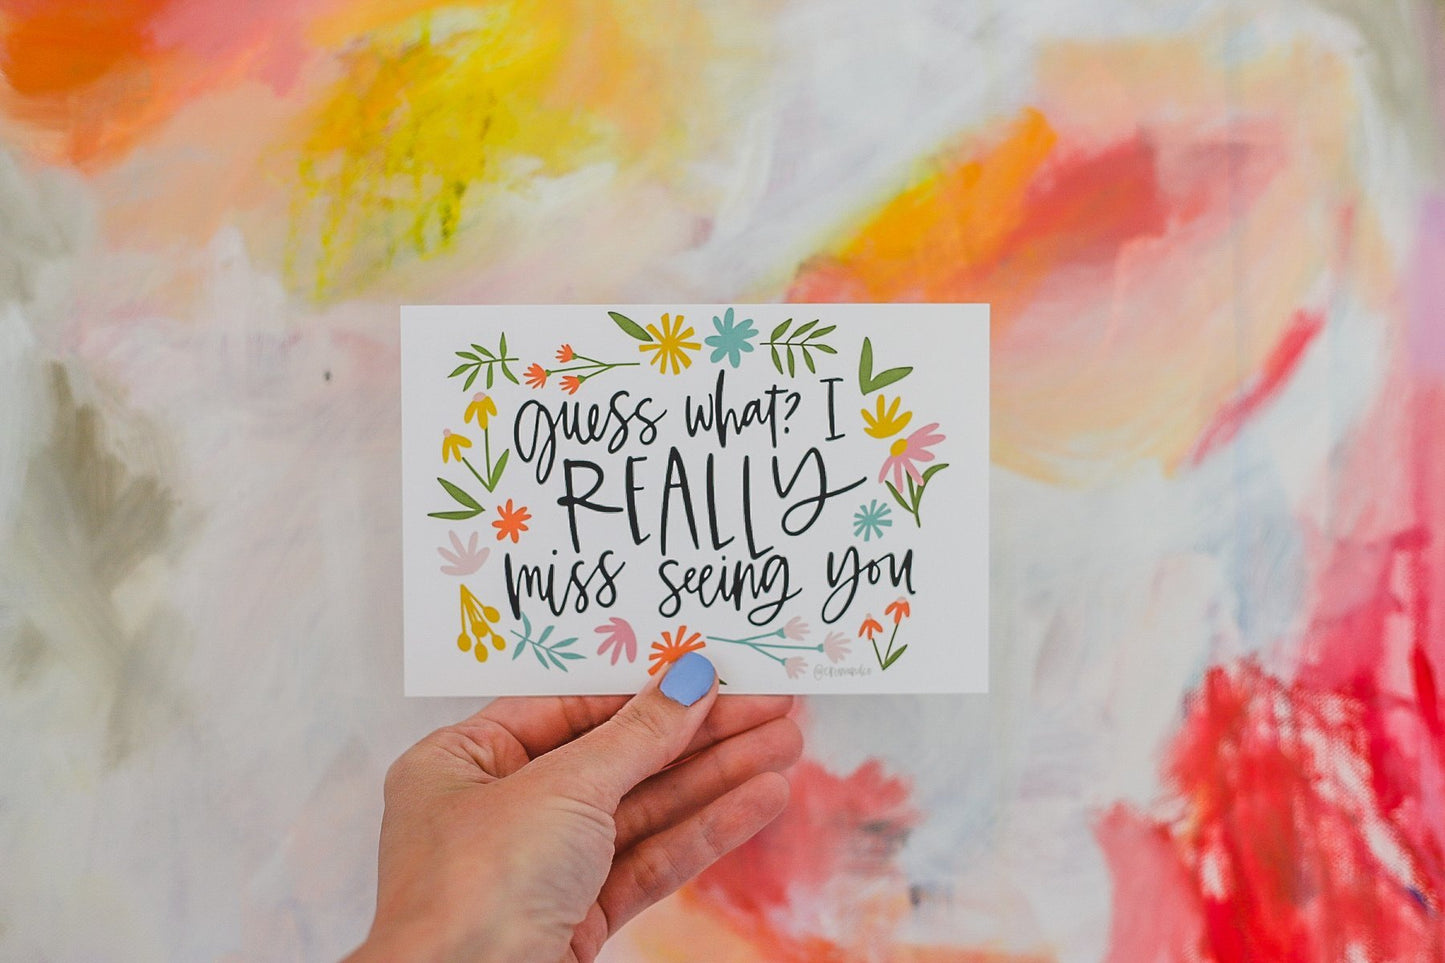 guess what? I
REALLY
miss seeing you